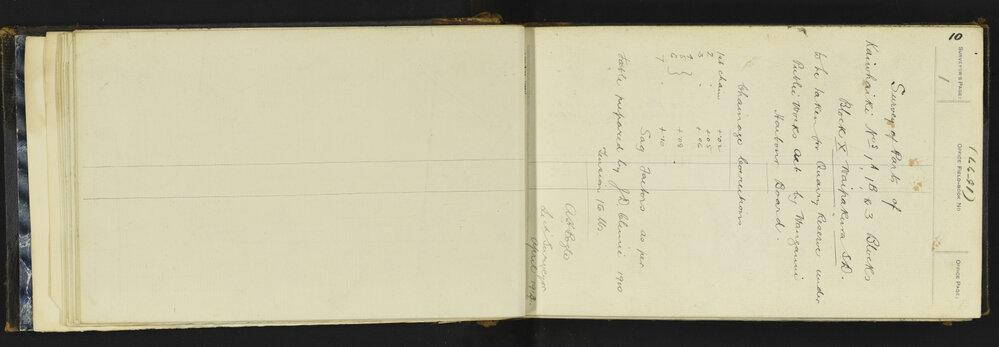 10
SURVEYOR'S PAGE:
1
OFFICE FIELD-BOOK NO
OFFICE PAGE:
Survey of Parts of
Kaiwhaiki Nos 1A 1B & 3 Blocks
Block X Waipakura S.D.
to be taken for Quarry Reserve under
Public Works Act by Wanganui
Harbour Board.
Chainage Corrections
1st chain +.02
2 +.05
3 +.06
4
5 } +.08
6
7 +.10
Sag Factors as per
table prepared by J.D. Climie 1900
Tension 16 lbs.
Licd Surveyor
April 1912